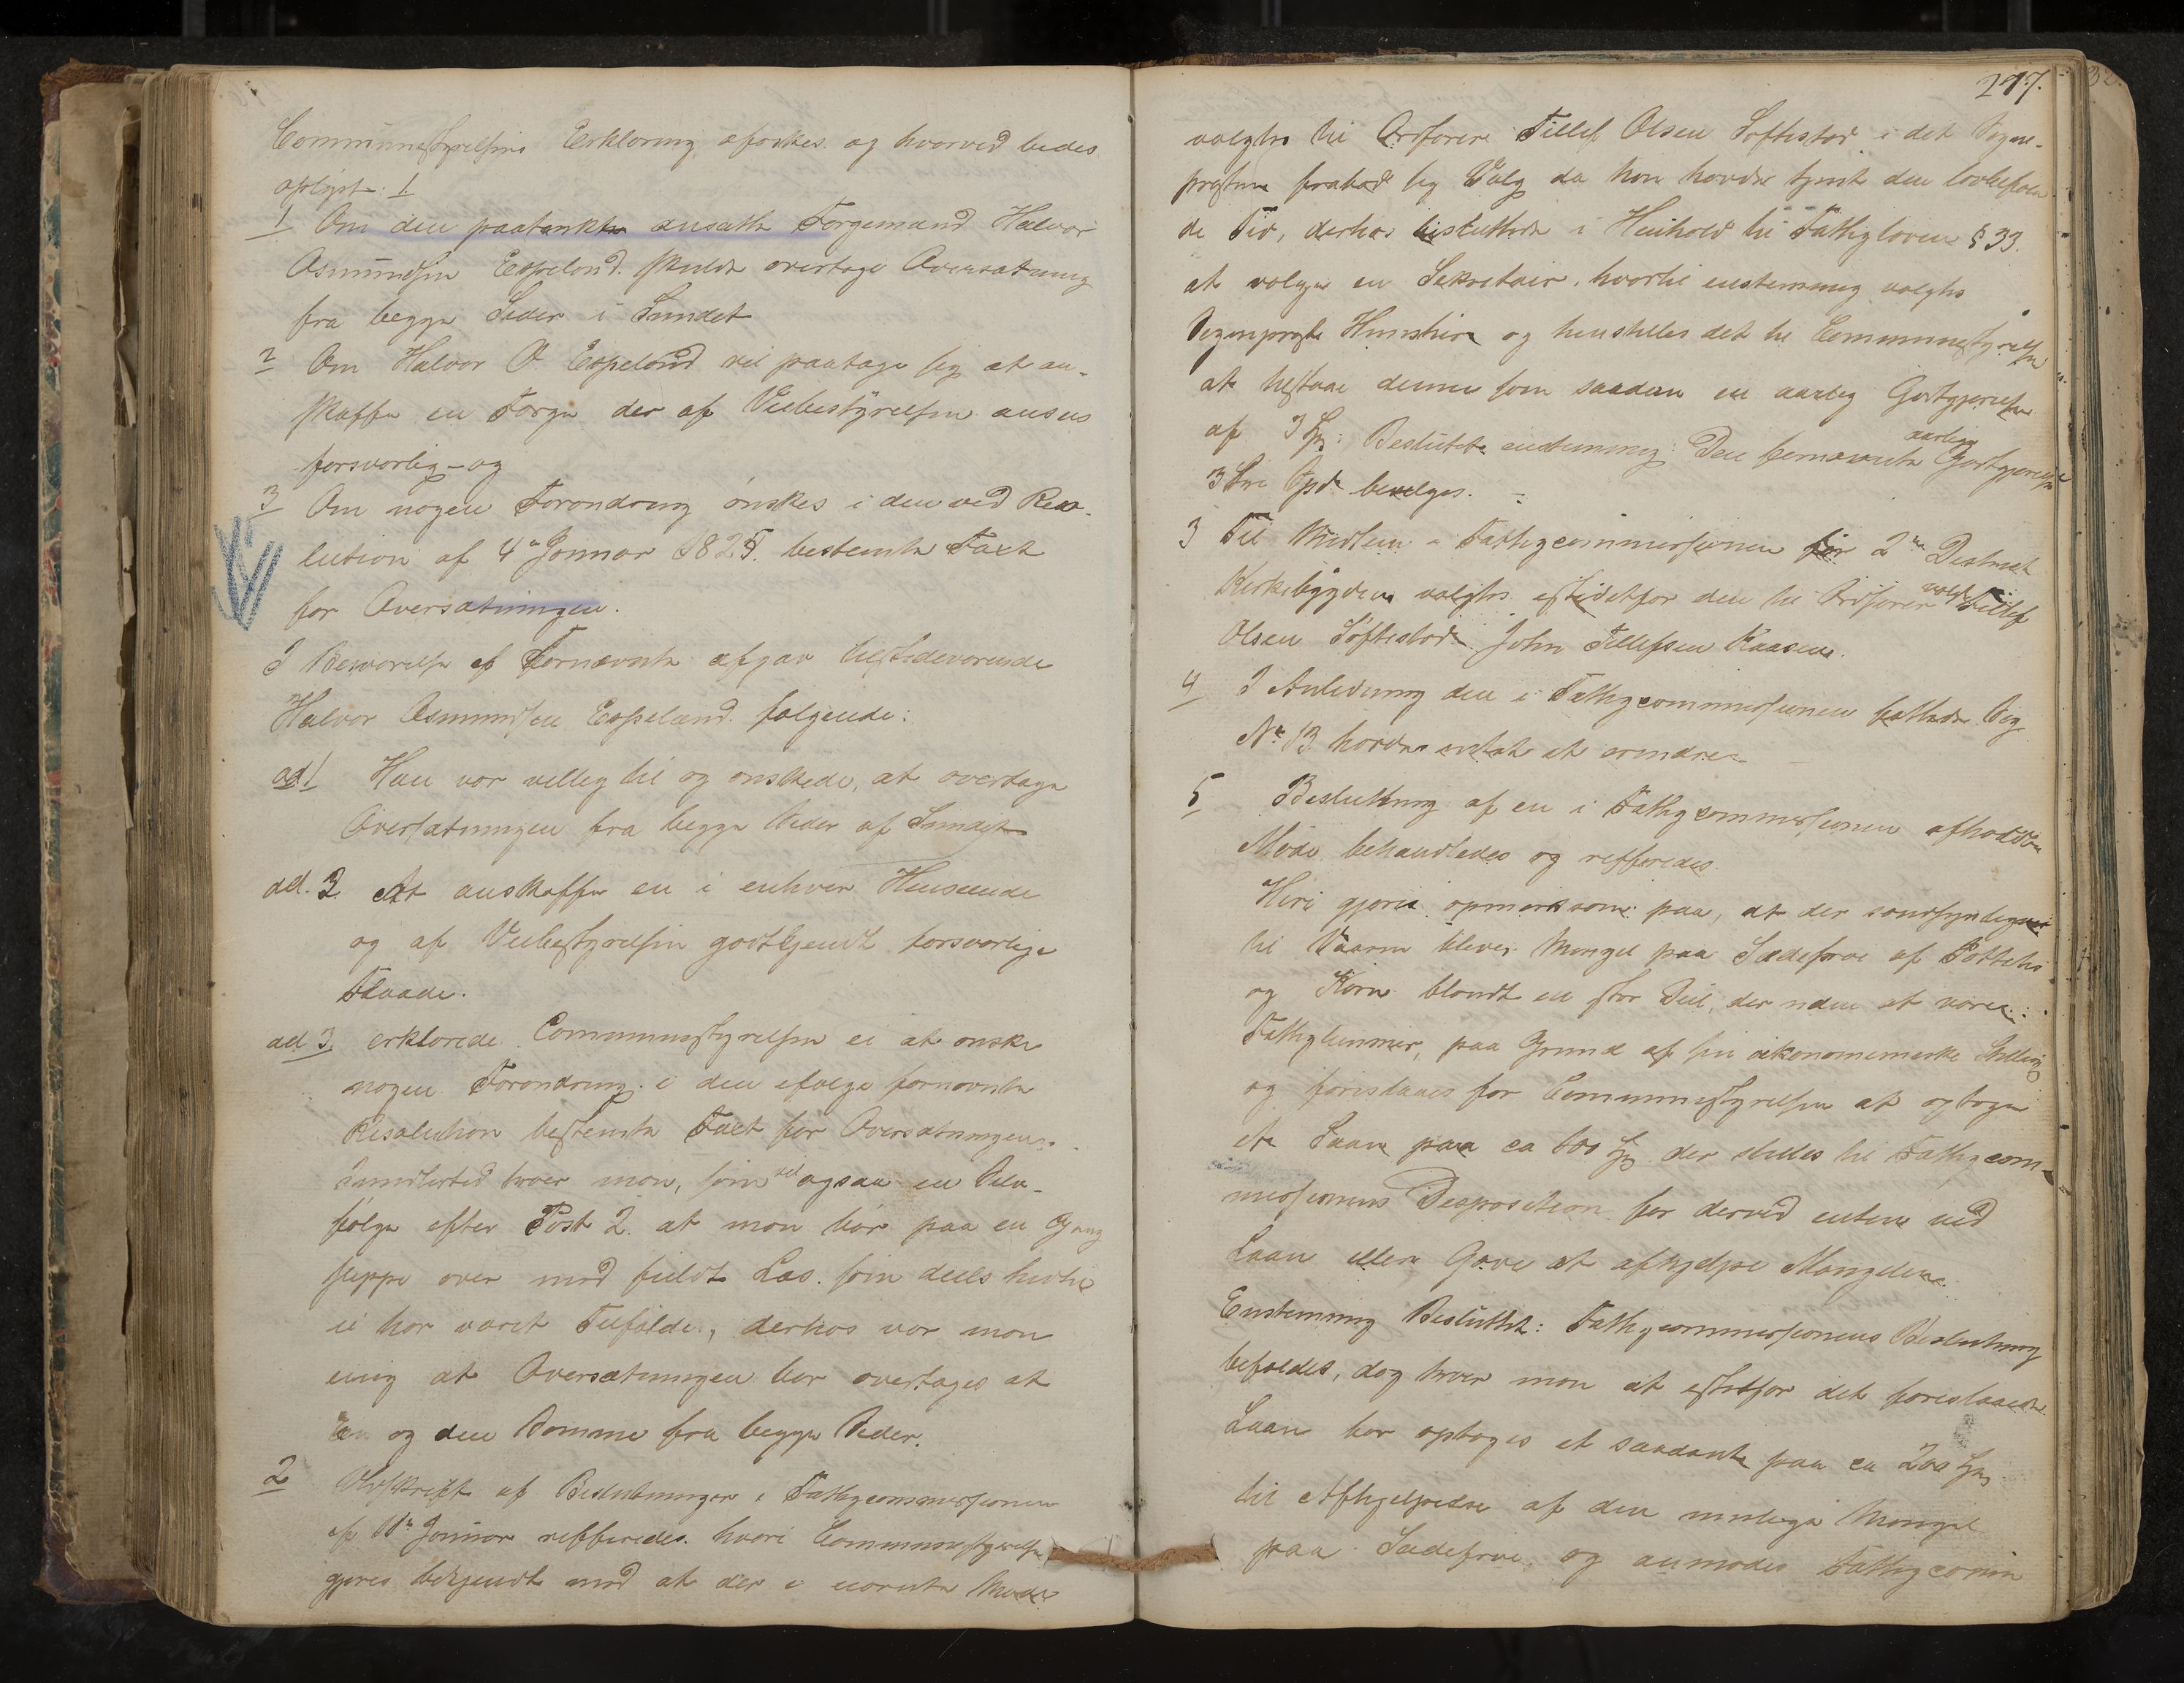 Communestyrelsens Erklæring æfaskes og hvorved bedes
oplyst: 1
1 Om den paatænkte ansatte Færgemand Halvor
Asmundsen Espeland skulde overtage Oversætning
fra begge Sider i Sundet
2 Om Halvor A Espeland vil paatage sig at an-
skaffe en Færge der af Veibestyrelsen ansees
forsvarlig - og
3 Om nogen Forandring ønskes i den ved Reso-
lution af 4de Januar 1825 bestemte Taxt
for Oversætningen.
I Besvarelse af Fornævnte afgav tilstedeværende
Halvor Asmundsen Espeland følgende:
ad 1 Han var villig til og ønskede, at overtage
Oversætningen fra begge Sider af Sundet
ad. 2 At anskaffe en i enhver Henseende
og af Veibestyrelsen godkjendt forsvarlige
Flaade.
ad 3 erklærede Communestyrelsen ei at ønske
nogen Forandring i den ifølge fornævnte
Resolution bestemte Taxt for Oversætningen.
troer man, som vel ogsaa en Selv-
følge efter Post 2. at man bør paa en Gang
slippe over med fuldt Læs. som deels hidtil
ei har været Tilfælde, derhos var man
enig at Oversætningen bør overtages at
en og den Samme fra begge Sider.
2 Udskrift af Beslutninger i Fattigcommissionen
af 11te Januar refferedes. hvori Communestyrelsen
gjøres bekjendt med at der i nævnte Møde
217.
valgtes til Ordfører Tellef Olsen Løftestad i det Sogne-
presten frabad sig Valg da han havde tjent den lovbefalen
de Tid, derhos besluttede i Henhold til Fattigloven § 33.
at vælge en Sekretair, hvortil enstemmig valgtes
Sogneprest Hunshire og henstilles det til Communestyrelsen
at tilstaae denne som saadan en aarlig Godtgjørelse
af 3 Spd: Besluttet enstemmig: Den bemeldte aarlige Godtgjørelse
3 tre Spd bevilges. -
3 Til Medlem i Fattigcommissionen for 2det District
Kirkebygden valgtes istedetfor den til Ordfører valdte Tellef
Olsen Løftestad John Tellefsen Kaasene.
4 I Anledning den i Fattigcommissionen fattede Sag
No 13 havdes intet at erindre -
5 Beslutning af en i Fattigcommissionen afholdte
Møde behandledes og refferedes.
Heri gjøres opmerksom paa, at der sandsynligvis
til Vaaren bliver Mangel paa Sædefrøe af Potteter
og Korn blandt en stor Deel, der uden at være
Fattiglemmer, paa Grund af sin økonomiske Stilling
og foreslaaes for Communestyrelsen at optage
et Laan paa ca 600 Spd der stilles til Fattigcom-
missionens Disposition for derved enten ved
Laan eller Gave at afhjelpe Mangelen.
Enstemmig Besluttet: Fattigcommissionens Beslutning
bifaldes, dog troer man at istedetfor det foreslaaede
Laan bør optages et saadant paa ca 200 Spd
til Afhjelpelse af den mulige Mangel
paa Sædefrøe. og anmodes Fattigcomm